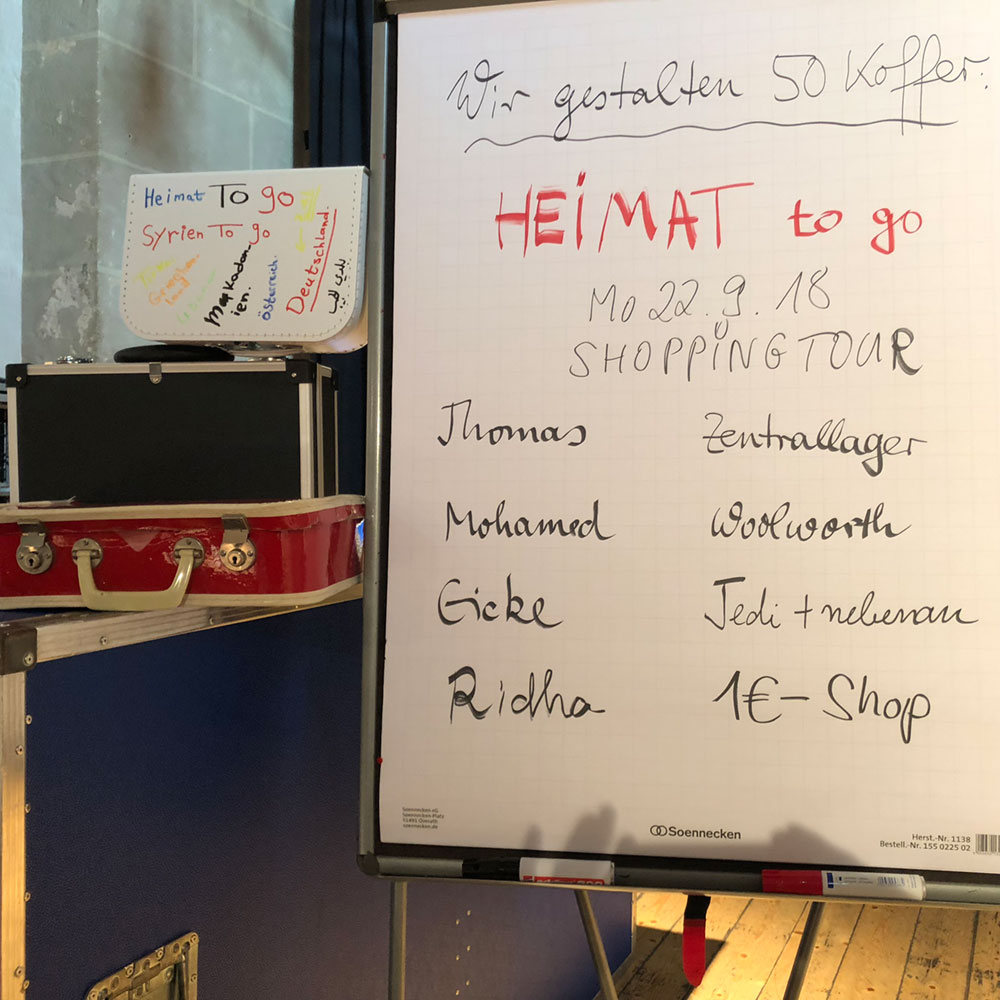 Wir gestalten 50 Koffer.
HEiMAT to go
Mo 22.9.18
SHOPPiNGTOUR
Thomas Zentrallager
Mohamed Woolworth
Eicke Jedi + nebenan
Ridha 1€ - Shop
Soennecken eG
Soennecken-Platz
51491 Overath
soennecken.de
Soennecken
Herst.-Nr. 1138
Bestell.-Nr. 155 0225 02
Heimat TO go
Syrien TO go
Österreich.
Deutschland.